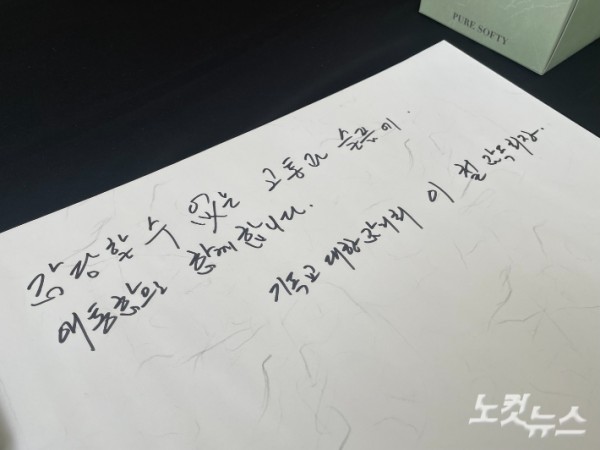 PURE SOFTY
감당할 수 없는 고통과 슬픔에.
애통함으로 함께 합니다.
기독교 대한감리회 이 철 감독회장.
노컷뉴스